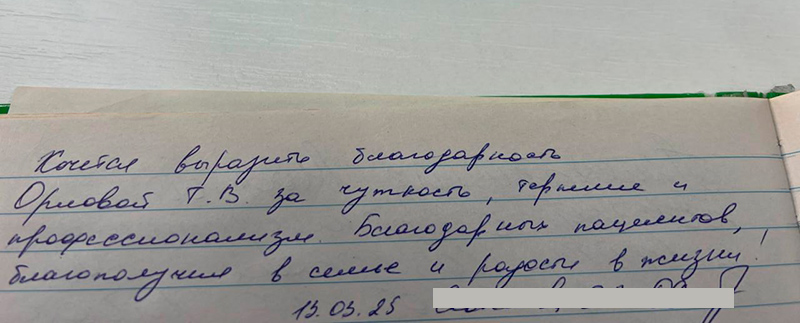 Хочется выразить благодарность
Орловой Т.В. за чуткость, терпение и
профессионализм. Благодарных пациентов,
благополучия в семье и радости в жизни!
13.03.25